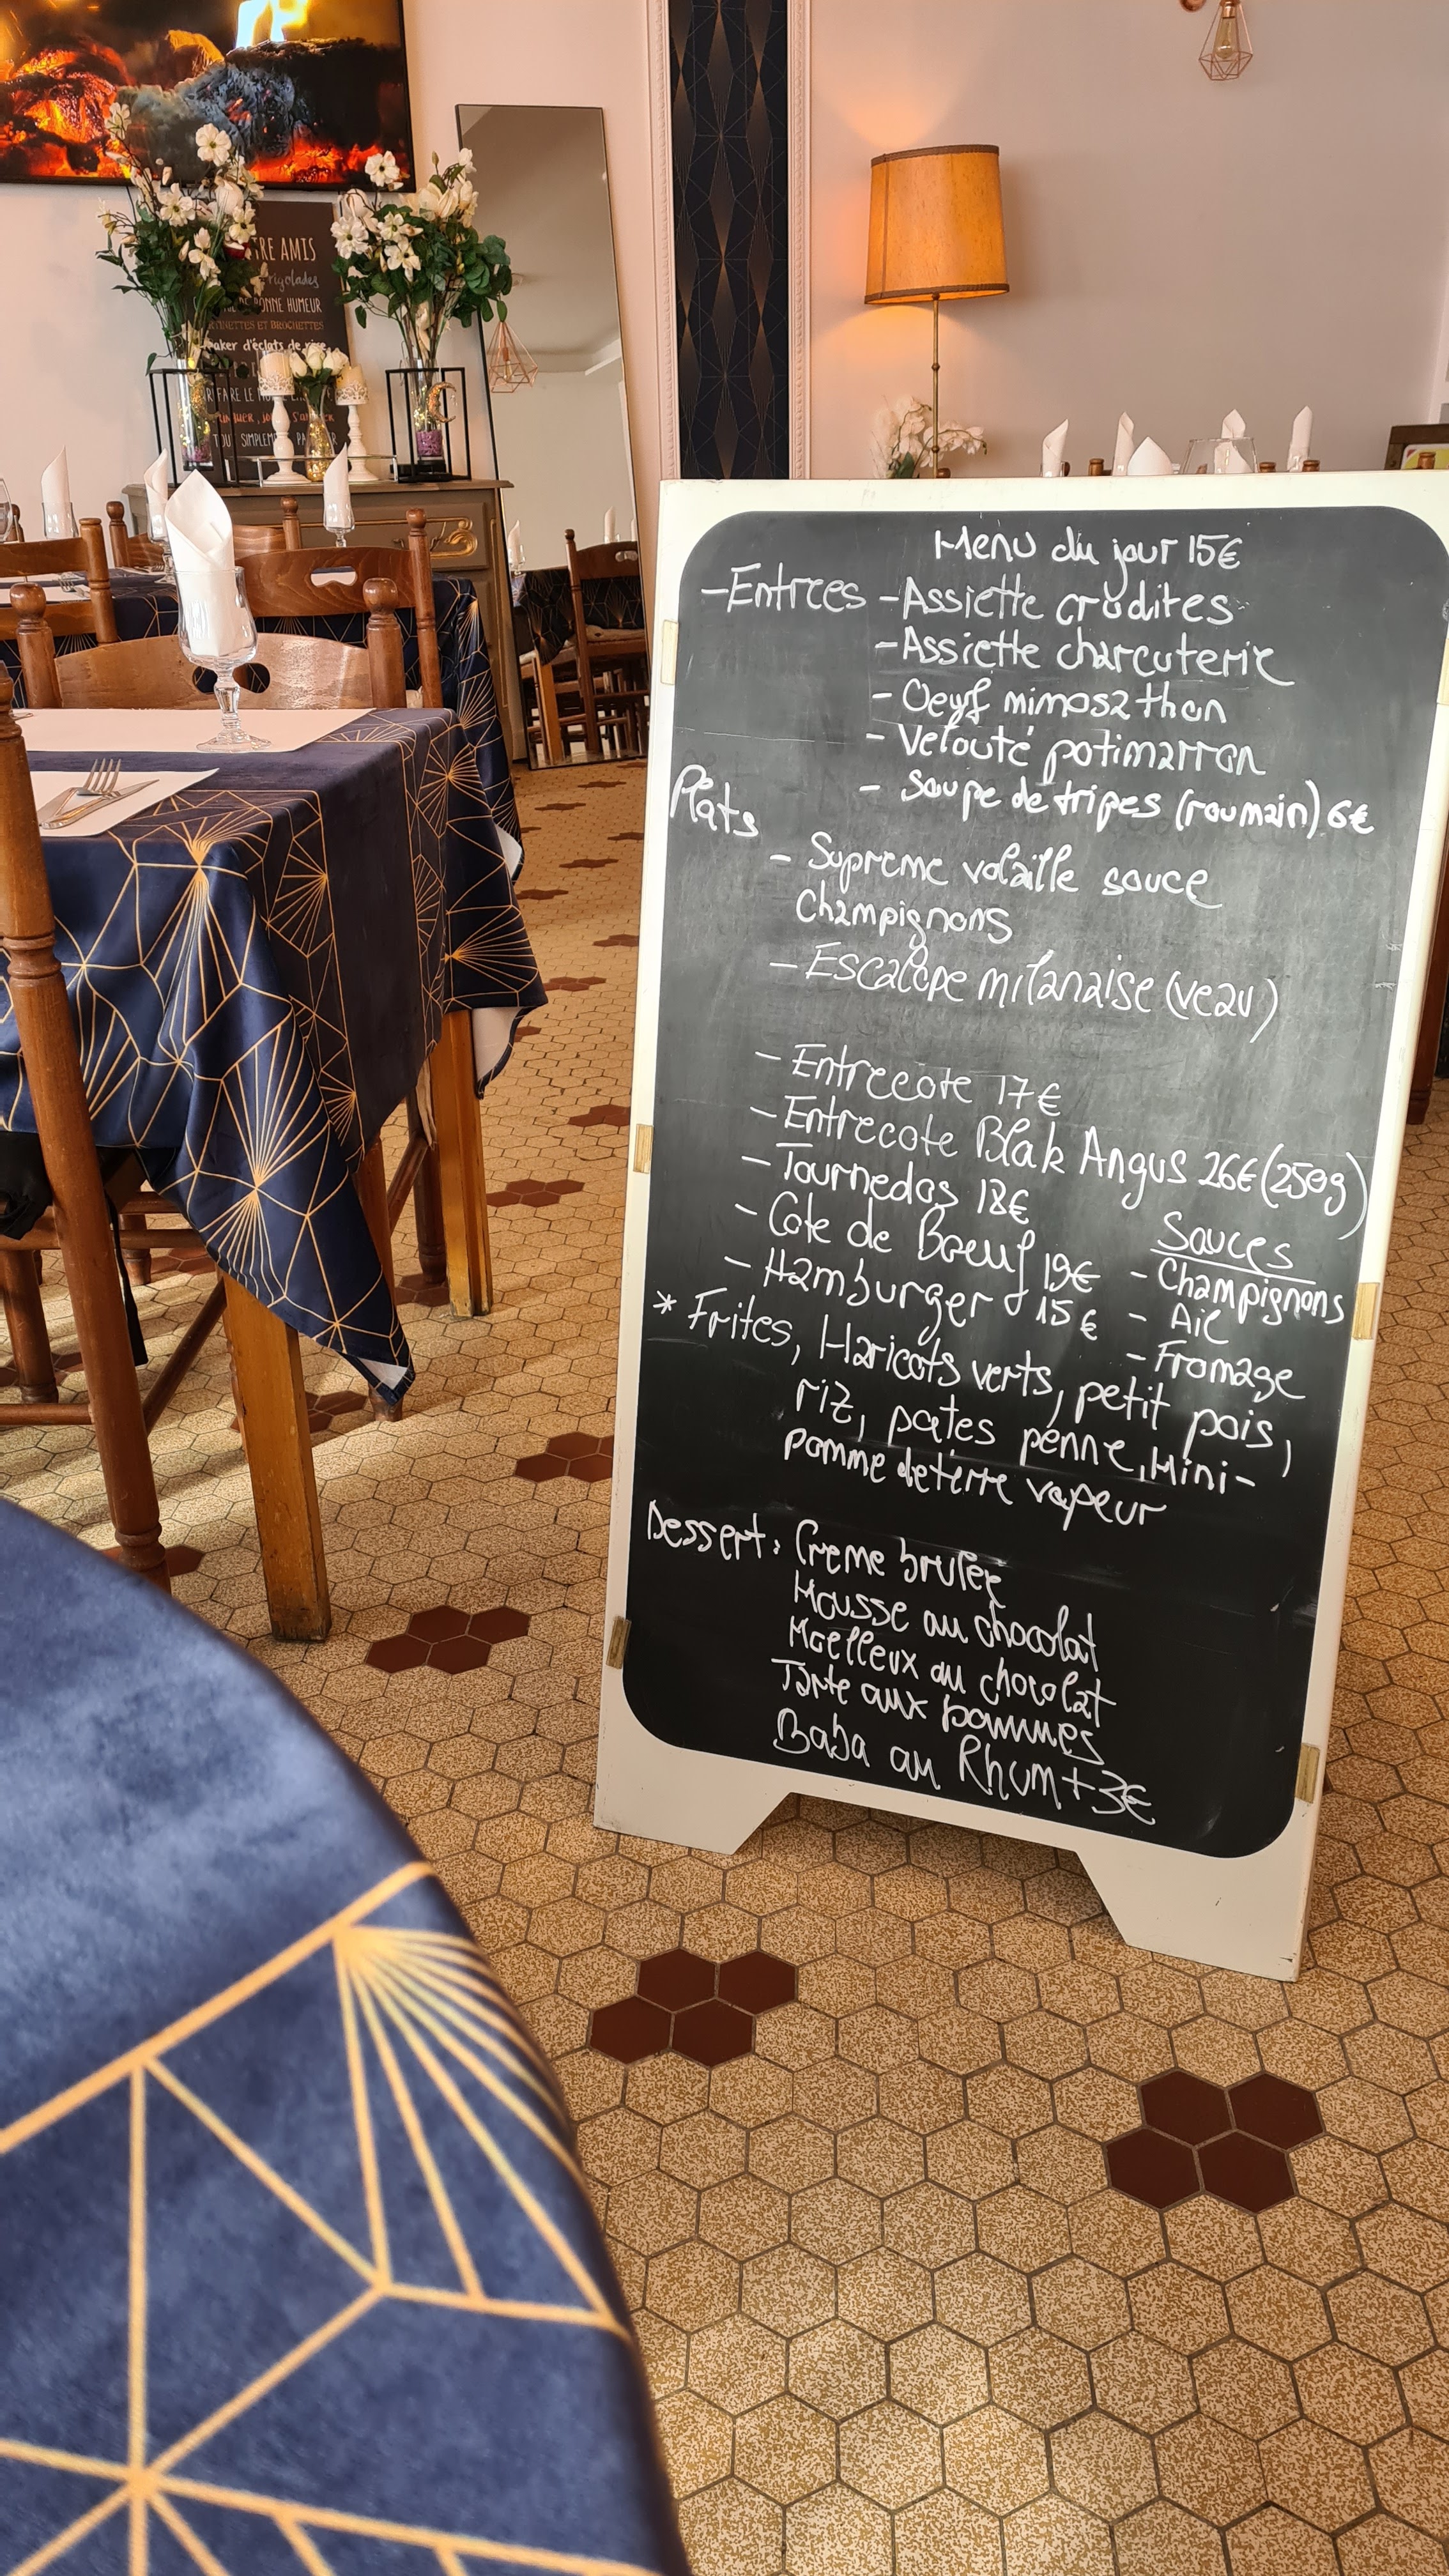 TRE AMIS
rigolades
BONNE HUMEUR
ET BROCHETTES
d'éclats de rire
FARE LE
TOUT SIMPLEME
Menu du jour 15€
-Entrees -Assiette crudites
-Assiette charcuterie
- Oeuf mimosa thon
- Velouté potimarron
- Soupe de tripes (roumain) 6€
Plats
- Supreme volaille souce
Champignons
- Escalope milanaise (veau)
- Entrecote 17€
- Entrecote Blak Angus 26€ (250g)
- Tournedos 18€
- Cote de Boeuf 19€
- Hamburger 15€
Souces
- Champignons
- Ail
- Fromage
* Frites, Haricots verts, petit pois,
riz, pates penne, Mini-
pomme de terre vapeur
Dessert: Creme brulee
Mousse au chocolat
Moelleux au chocolat
Tarte aux pommes
Baba au Rhum +3€